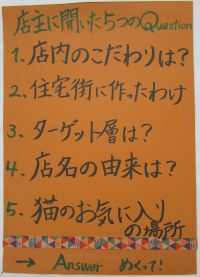 店主に聞いた5つのQuestion
1. 店内のこだわりは?
2. 住宅街に作ったわけ
3. ターゲット層は?
4. 店名の由来は?
5. 猫のお気に入り
の場所
→ Answer めくって!